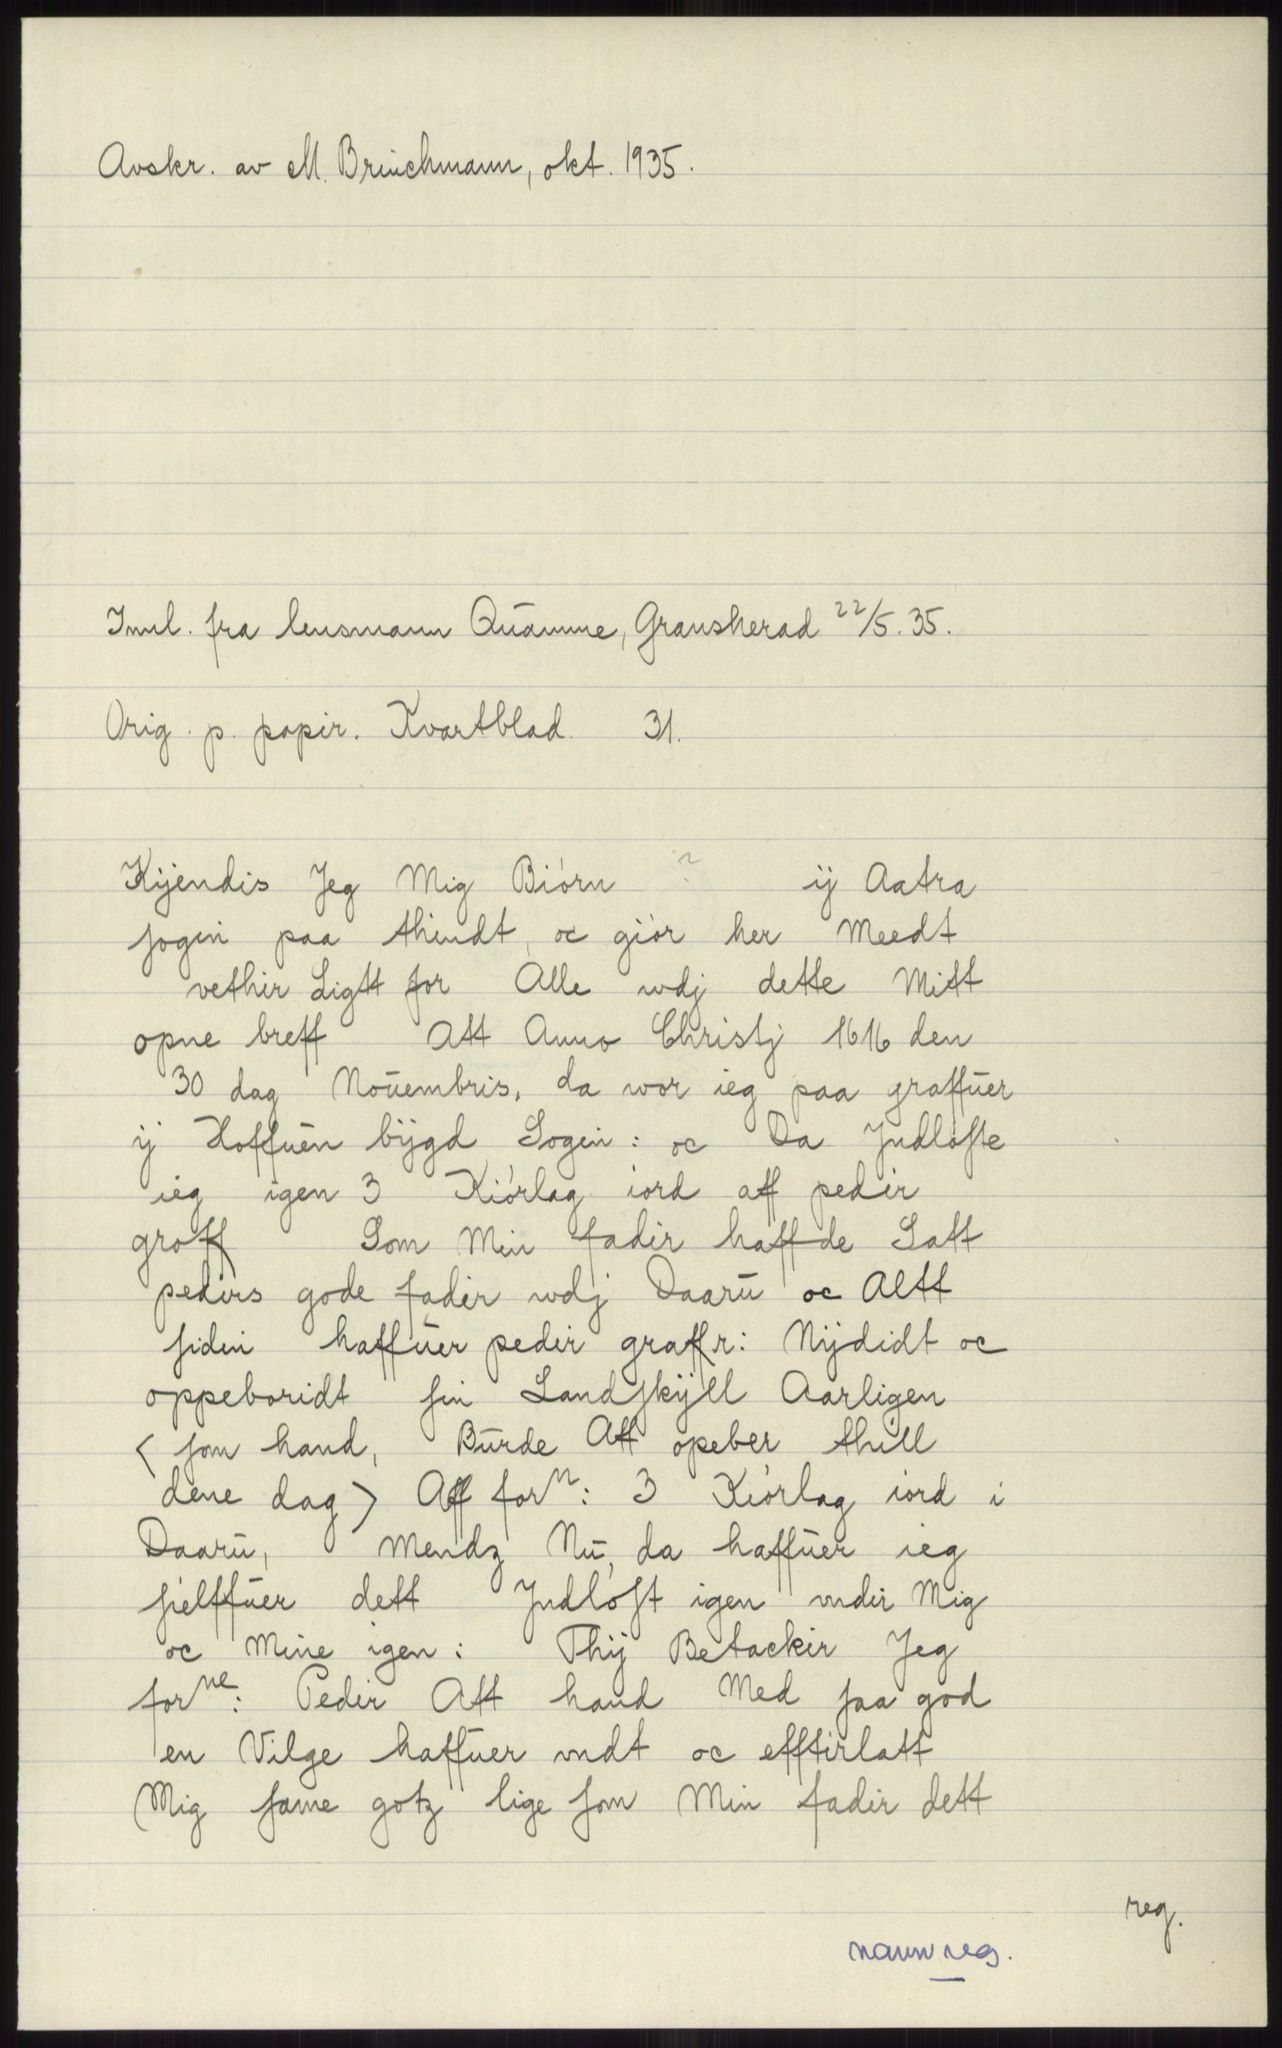 Avskr. av M. Brinchmann, okt. 1935.
Innl. fra lensmann Quamme, Gransherad 22/5. 35.
Orig. p. papir. Kvartblad. 31.
Kijendis Jeg Mig Biórn ? ij Aatra
sogin paa thindt, oc giór her Meedt
vethir Ligtt for Alle wdj dette Mitt
opne breff Att Anno Christj 1616 den
30 dag Nouembris, da wor ieg paa graffuer
ij Hoffuen bijgd Sogin: oc Da Jndlóste
ieg igen 3 Kiórlag iord aff pedir
groff Som Min fadir haffde Satt
pedirs gode fadir wdj Daaru oc Altt
sidin haffuer pedir graffr: Nijdidt oc
oppeboridt sin Landskijll Aarligen
< som hand, Burde Att opeber thill
dene dag > Aff forn: 3 Kiórlag iord i
Daaru, Mendz Nu, da haffuer ieg
sielffuer dett Jndlóst igen vndir Mig
oc Mine igen: Thij Betackir Jeg
forne: Pedir Att hand Med saa god
en Vilge haffuer vndt oc efftirlatt
Mig same gotz lige som Min fadir dett
reg.
navnreg.